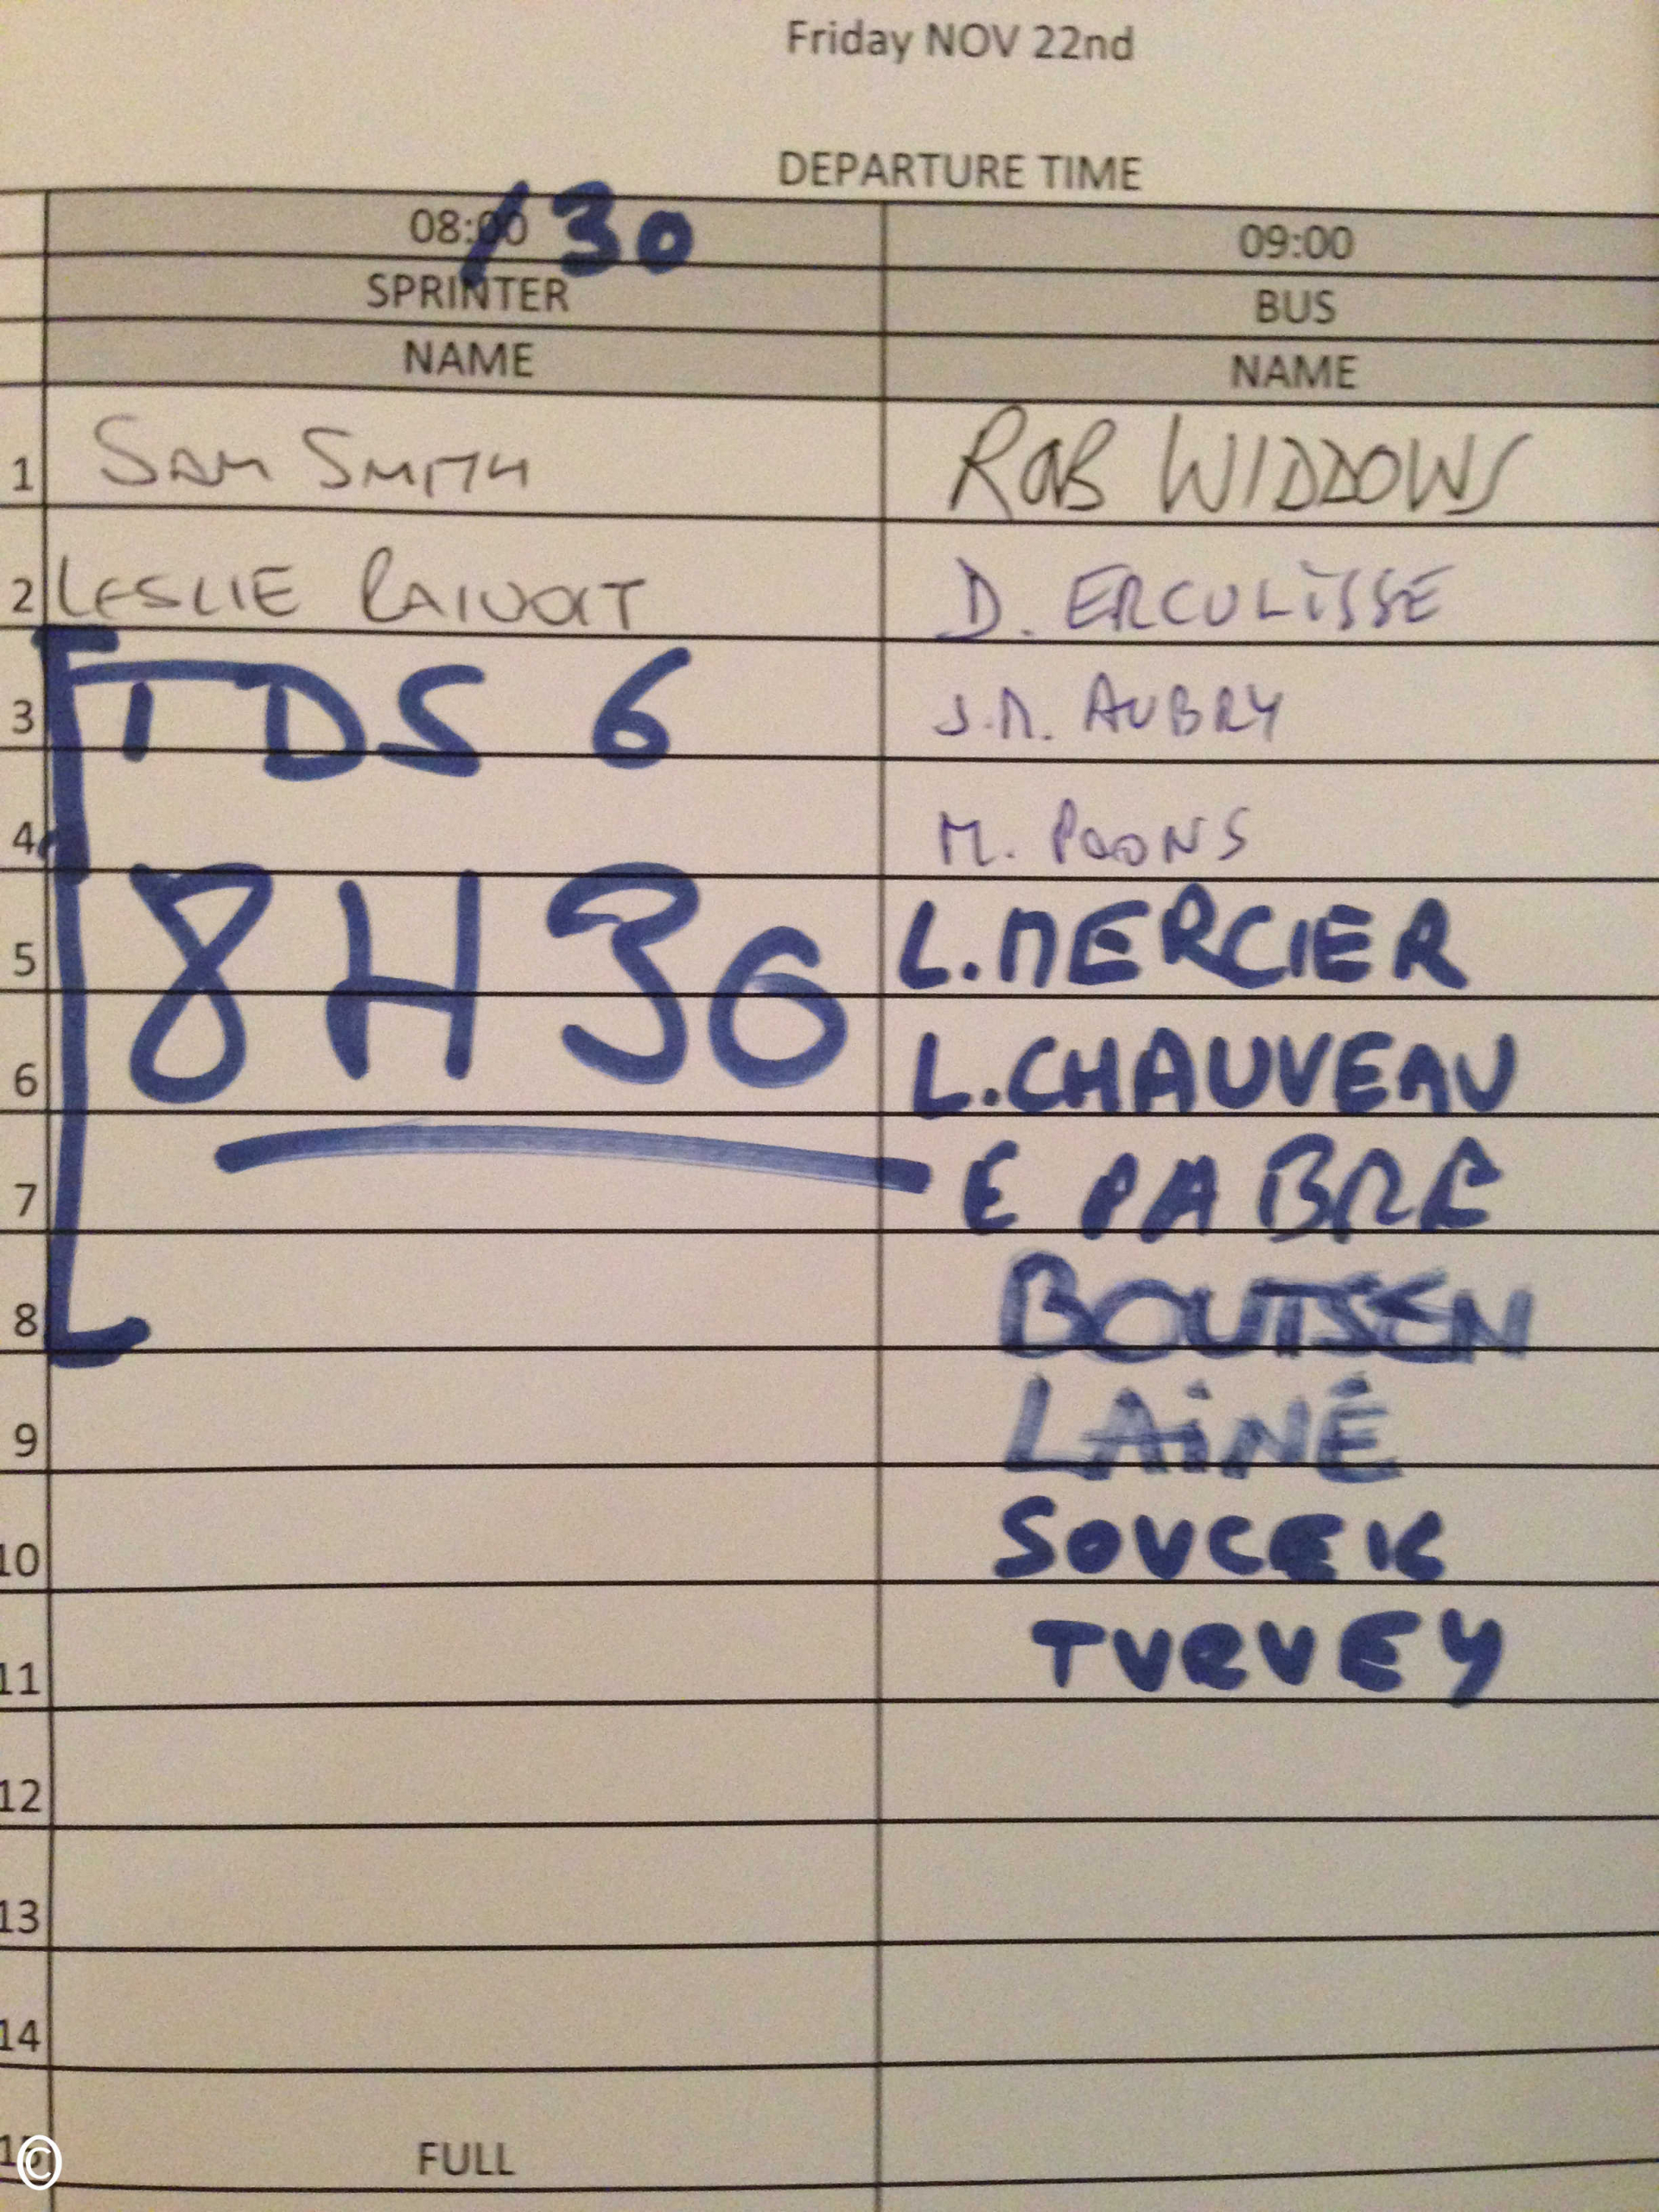 Friday NOV 22nd
DEPARTURE TIME
08:00 /30 09:00
SPRINTER BUS
NAME NAME
1 SAM SMITH ROB WIDDOWS
2 LESLIE D. ERCULISSE
3 TDS 6 J.M. AUBRY
4 M. POONS
5 8H30 L.MERCIER
6 L.CHAUVEAU
7 E PABRE
8 BOUTSEN
9 LAiNÉ
10 SOUCEK
11 TURVEY
12
13
14
15 FULL
©